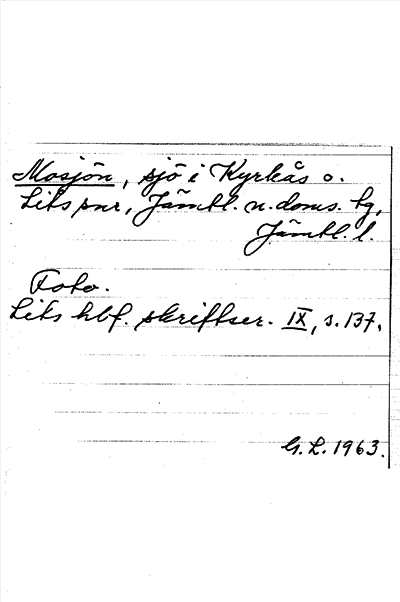 Mosjön, sjö i Kyrkås o.
Lits snr, Jämtl. n. doms. hg,
Jämtl. l.
Foto.
Lits hbf. skriftser. IX, s. 137.
G. L. 1963.